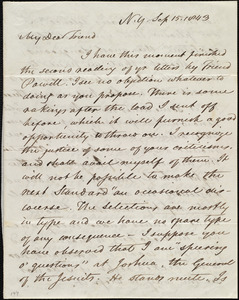 N.Y. Sep 15. 1843
My Dear Friend
I have this moment finished
the second reading of yr letter by Friend
Powell. I see no objection whatever to
doing as you propose. There is some
before which it will furnish a good
opportunity to throw on. I recognize
the justice of some of your criticisms,
and shall avail myself of them. It
will not be possible to make the
next Standard an occasional dis-
course. The selections are mostly
in type and we have no spare type
of any consequence - I suppose you
have observed that I am "speering
o' questions" at Joshua, the General
of the Jesuits. He stands mute. Is